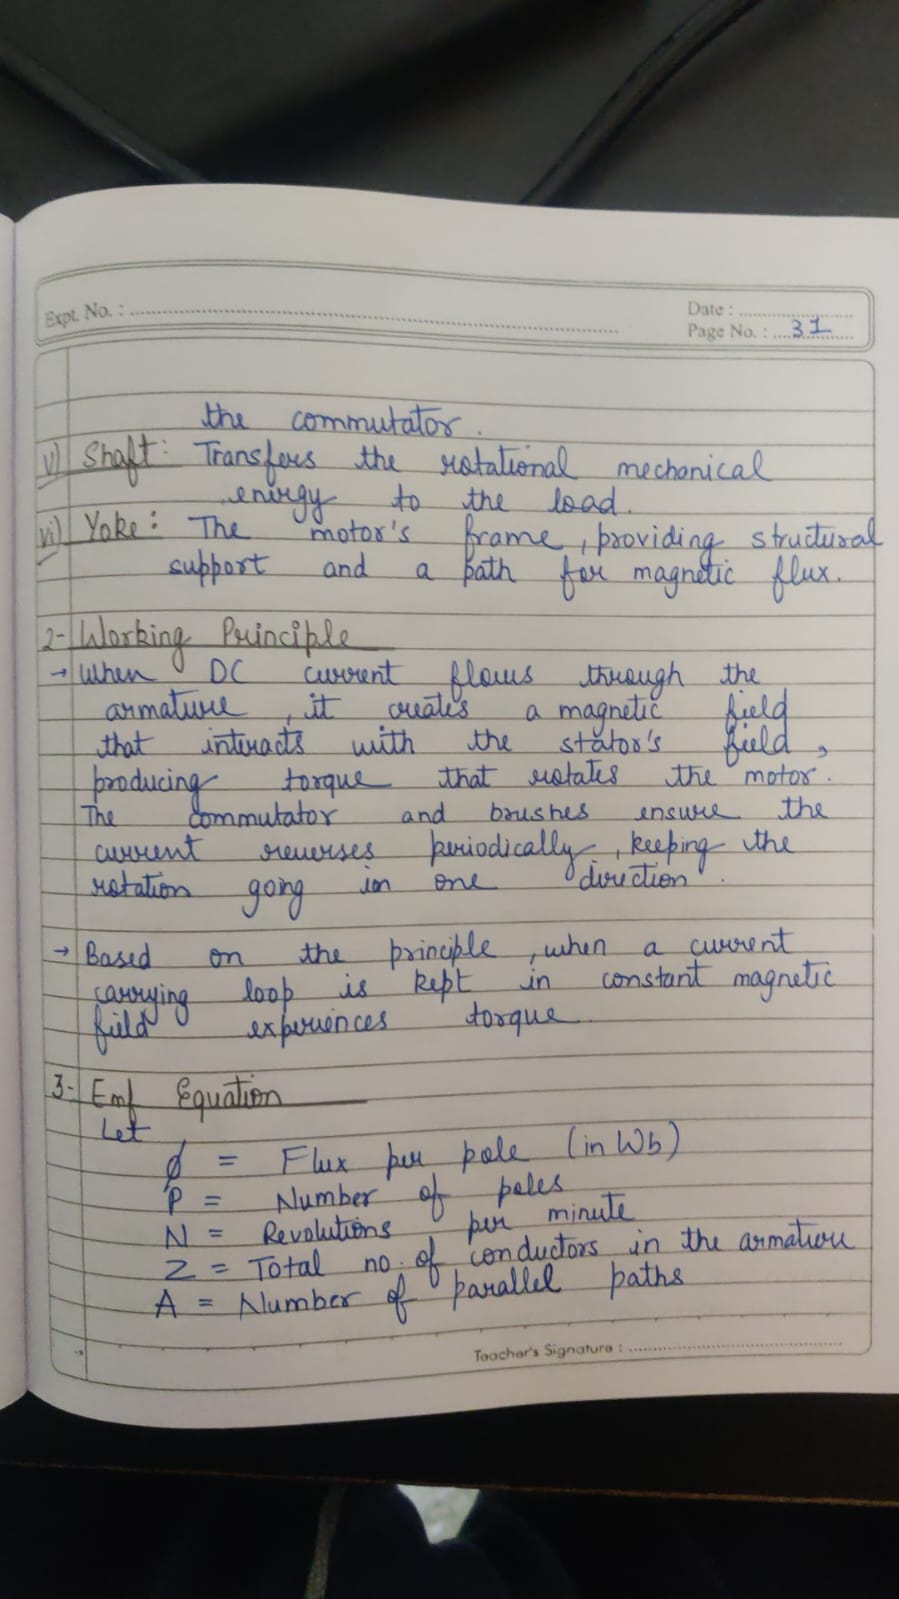 Expt. No. :
Date :
Page No. : 31
the commutator.
v) Shaft: Transfers the rotational mechanical
energy to the load.
vi) Yoke: The motor's frame, providing structural
support and a path for magnetic flux.
2- Working Principle
→ When DC current flows through the
armature, it creates a magnetic field
that interacts with the stator's field,
producing torque that rotates the motor.
The commutator and brushes ensure the
current reverses periodically, keeping the
rotation going in one direction.
→ Based on the principle, when a current
carrying loop is kept in constant magnetic
field experiences torque
3- Emf Equation
Let
ϕ = Flux per pole (in Wb)
P = Number of poles
N = Revolutions per minute
Z = Total no. of conductors in the armature
A = Number of parallel paths
Teacher's Signature :